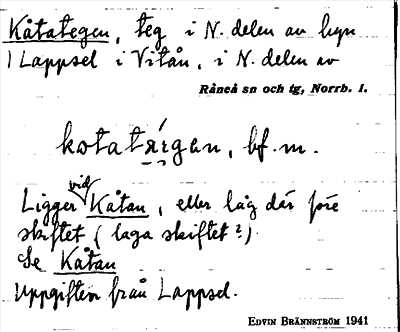 Kåtategen, teg i N. delen av byn
Lappsel i Vitån, i N. delen av
Råneå sn och tg, Norrb. l.
Ligger vid Kåtan, eller låg där före
skiftet (laga skiftet?)
Se Kåtan
Uppgiften från Lappsel.
EDVIN BRÄNNSTRÖM 1941